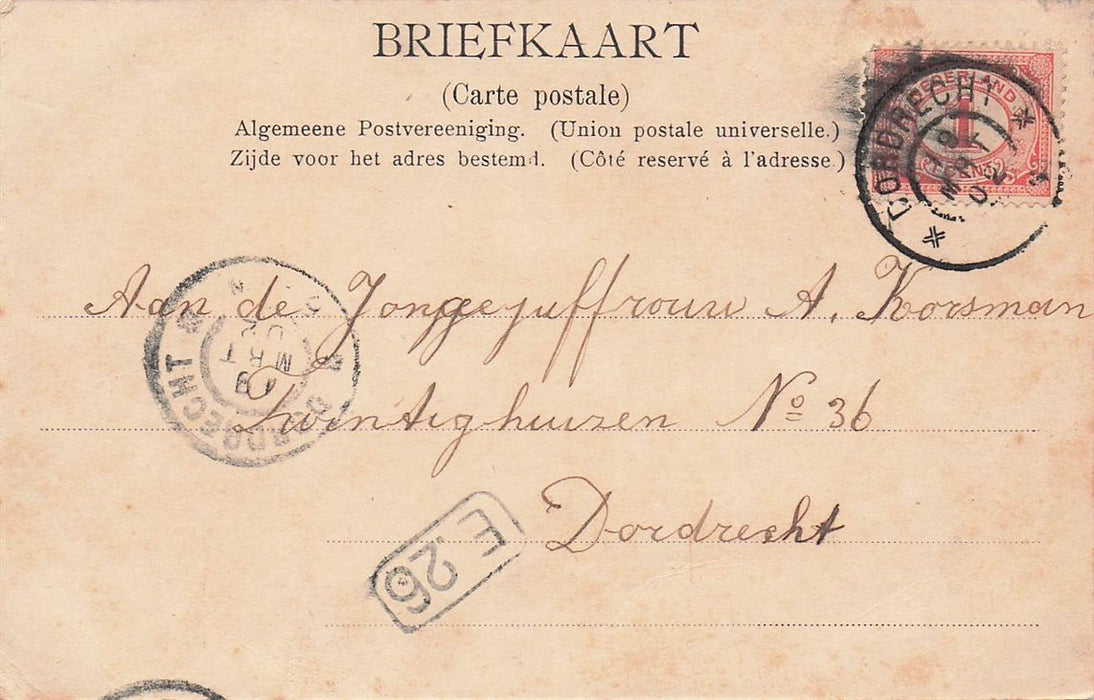 BRIEFKAART
(Carte postale)
Algemeene Postvereeniging. (Union postale universelle.)
Zijde voor het adres bestemd. (Côté reservé à l'adresse.)
NEDERLAND
1
CENT
DORDRECHT
19 MRT 02
Aan de Jongejuffrouw A. Korsman
Twintighuizen No 36
Dordrecht
DORDRECHT
19 MRT 02
E.26